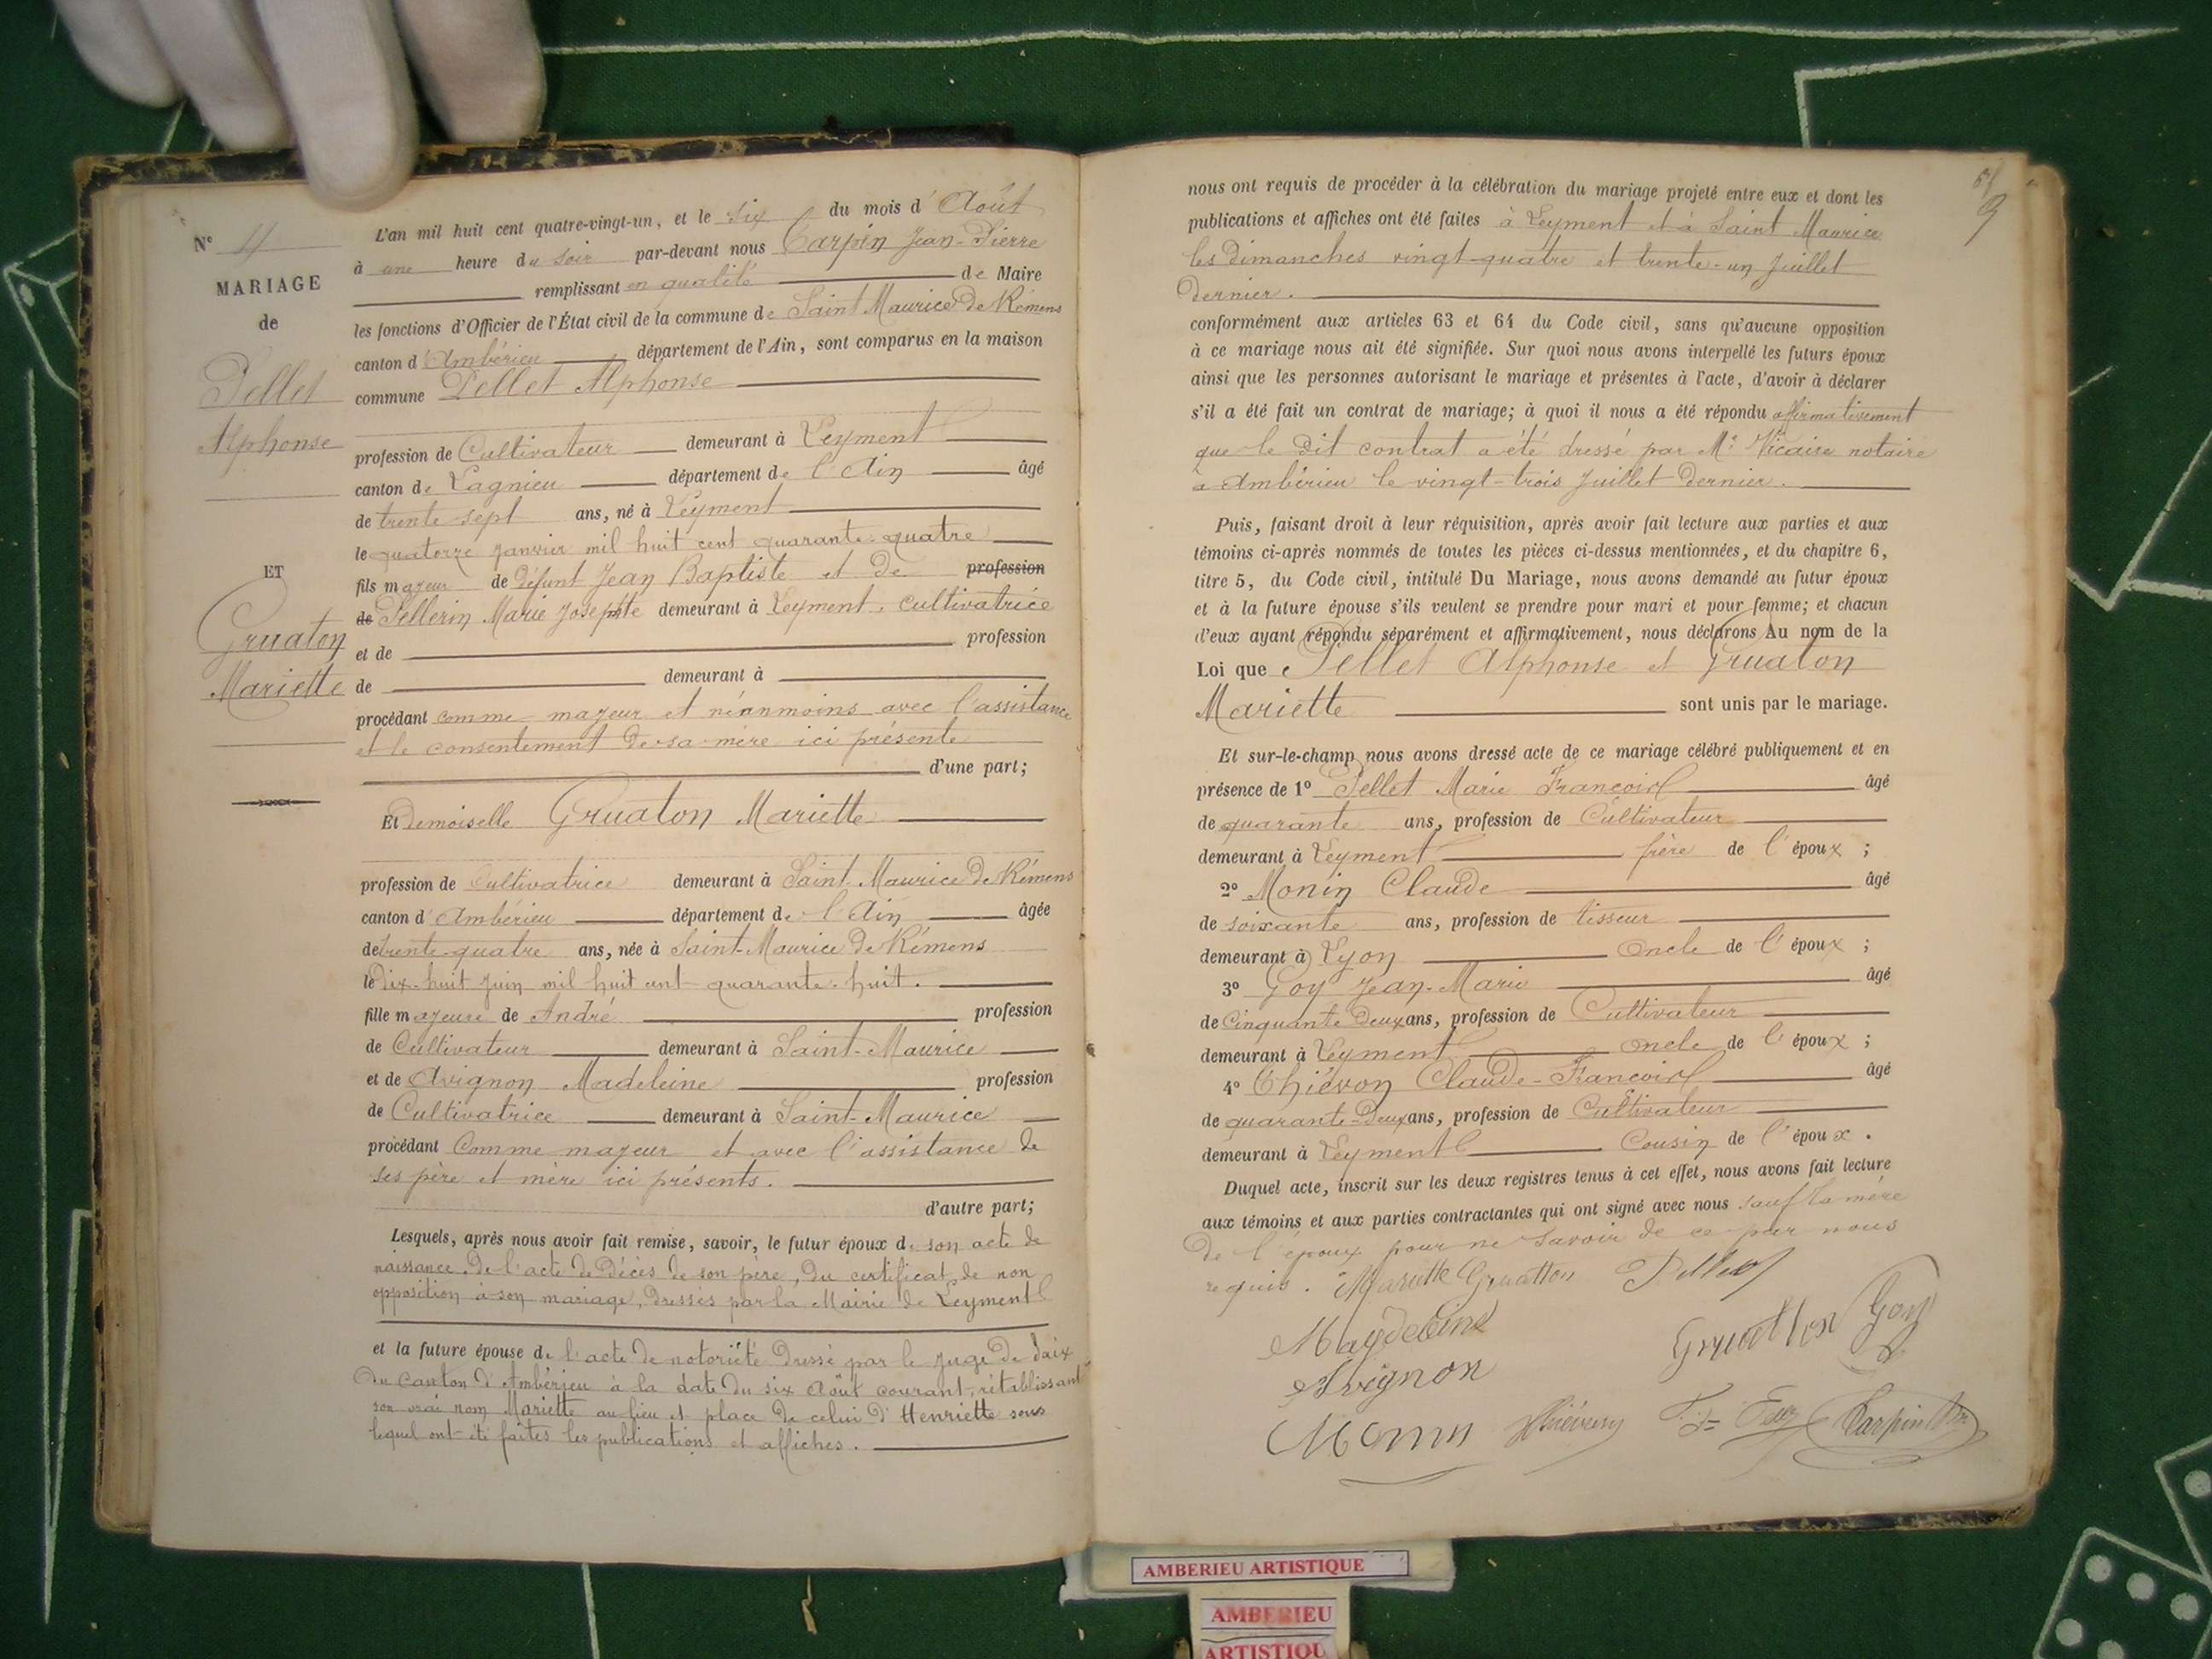 N° 4
MARIAGE
de
Pellet
Alphonse
ET
Gruaton
Mariette
L'an mil huit cent quatre-vingt-un, et le six du mois d'Août
à une heure du soir par-devant nous Carpin Jean-Pierre
remplissant en qualité de Maire
les fonctions d'Officier de l'État civil de la commune de Saint Maurice De Rémens
canton d'Ambérieu département de l'Ain, sont comparus en la maison
commune Pellet Alphonse
profession de Cultivateur demeurant à Leyment
canton de Lagnieu département de l'Ain âgé
de trente-sept ans, né à Leyment
le quatorze janvier mil huit cent quarante-quatre
fils majeur de défunt Jean Baptiste et de profession
de Pellerin Marie Josephte demeurant à Leyment, cultivatrice
et de profession
de demeurant à
procédant comme majeur et néanmoins avec l'assistance
et le consentement de sa mère ici présente
d'une part;
Et Demoiselle Gruaton Mariette
profession de Cultivatrice demeurant à Saint Maurice De Rémens
canton d'Ambérieu département de l'Ain âgée
de trente-quatre ans, née à Saint-Maurice De Rémens
le Dix-huit Juin mil huit cent quarante-huit.
fille majeure de André profession
de Cultivateur demeurant à Saint-Maurice
et de Avignon Madeleine profession
de Cultivatrice demeurant à Saint-Maurice
procédant Comme majeur et avec l'assistance de
ses père et mère ici présents.
d'autre part;
Lesquels, après nous avoir fait remise, savoir, le futur époux de son acte de
naissance. De l'acte de Décès de son père, Du certificat de non
opposition à son mariage, dressés par la Mairie de Leyment
et la future épouse de l'acte de notoriété Dressé par le juge De Paix
Du Canton d'Ambérieu à la date Du six Août courant, rétablissant
son vrai nom Mariette au lieu et place de celui d'Henriette sous
lequel ont été faites les publications et affiches.
9
nous ont requis de procéder à la célébration du mariage projeté entre eux et dont les
publications et affiches ont été faites à Leyment et à Saint Maurice
les Dimanches vingt-quatre et trente-un Juillet
Dernier.
conformément aux articles 63 et 64 du Code civil, sans qu'aucune opposition
à ce mariage nous ait été signifiée. Sur quoi nous avons interpellé les futurs époux
ainsi que les personnes autorisant le mariage et présentes à l'acte, d'avoir à déclarer
s'il a été fait un contrat de mariage; à quoi il nous a été répondu affirmativement
que le dit contrat a été dressé par Me Vicaire notaire
à Ambérieu le vingt-trois Juillet Dernier.
Puis, faisant droit à leur réquisition, après avoir fait lecture aux parties et aux
témoins ci-après nommés de toutes les pièces ci-dessus mentionnées, et du chapitre 6,
titre 5, du Code civil, intitulé Du Mariage, nous avons demandé au futur époux
et à la future épouse s'ils veulent se prendre pour mari et pour femme; et chacun
d'eux ayant répondu séparément et affirmativement, nous déclarons Au nom de la
Loi que Pellet Alphonse et Gruaton
Mariette sont unis par le mariage.
Et sur-le-champ nous avons dressé acte de ce mariage célébré publiquement et en
présence de 1° Pellet Marie François âgé
de quarante ans, profession de Cultivateur
demeurant à Leyment frère de l'époux;
2° Monin Claude âgé
de soixante ans, profession de tisseur
demeurant à Lyon Oncle de l'époux;
3° Goy Jean-Marie âgé
de Cinquante Deux ans, profession de Cultivateur
demeurant à Leyment Oncle de l'époux;
4° Thiévon Claude-François âgé
de quarante-Deux ans, profession de Cultivateur
demeurant à Leyment Cousin de l'époux.
Duquel acte, inscrit sur les deux registres tenus à cet effet, nous avons fait lecture
aux témoins et aux parties contractantes qui ont signé avec nous sauf la mère
De l'époux pour ne savoir de ce par nous
requis. Mariette Gruatton Pellet
Magdeleine Gruatton Goy
Avignon
Monin Thiévon Carpin
AMBERIEU ARTISTIQUE
AMBERIEU
ARTISTIQU